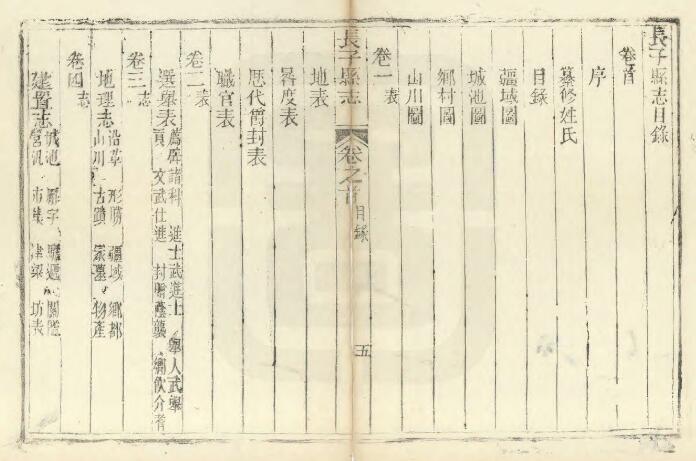 長子縣志目錄
卷首
序
纂修姓氏
目錄
疆域圖
城池圖
鄉村圖
山川圖
卷一 表
長子縣志 卷之首 目錄 五
地表
晷度表
歷代爵封表
職官表
卷二 表
選舉表 薦辟 諸科 進士 武進士 舉人 武舉
貢 文武仕進 封贈 蔭襲 鄉飲介耆
卷三 志
地理志 沿革 形勝 疆域 鄉都
山川 古蹟 冢墓 物產
卷四 志
建置志 城池 廨宇 關隘
營汛 市鎮 津梁 坊表